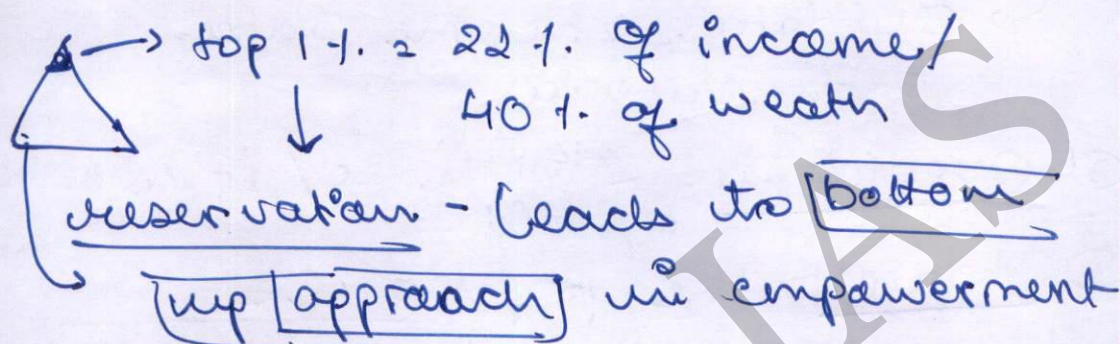 top 1 %. = 22 %. of income/
40 %. of wealth
reservation - leads to bottom
up approach in empowerment
IAS